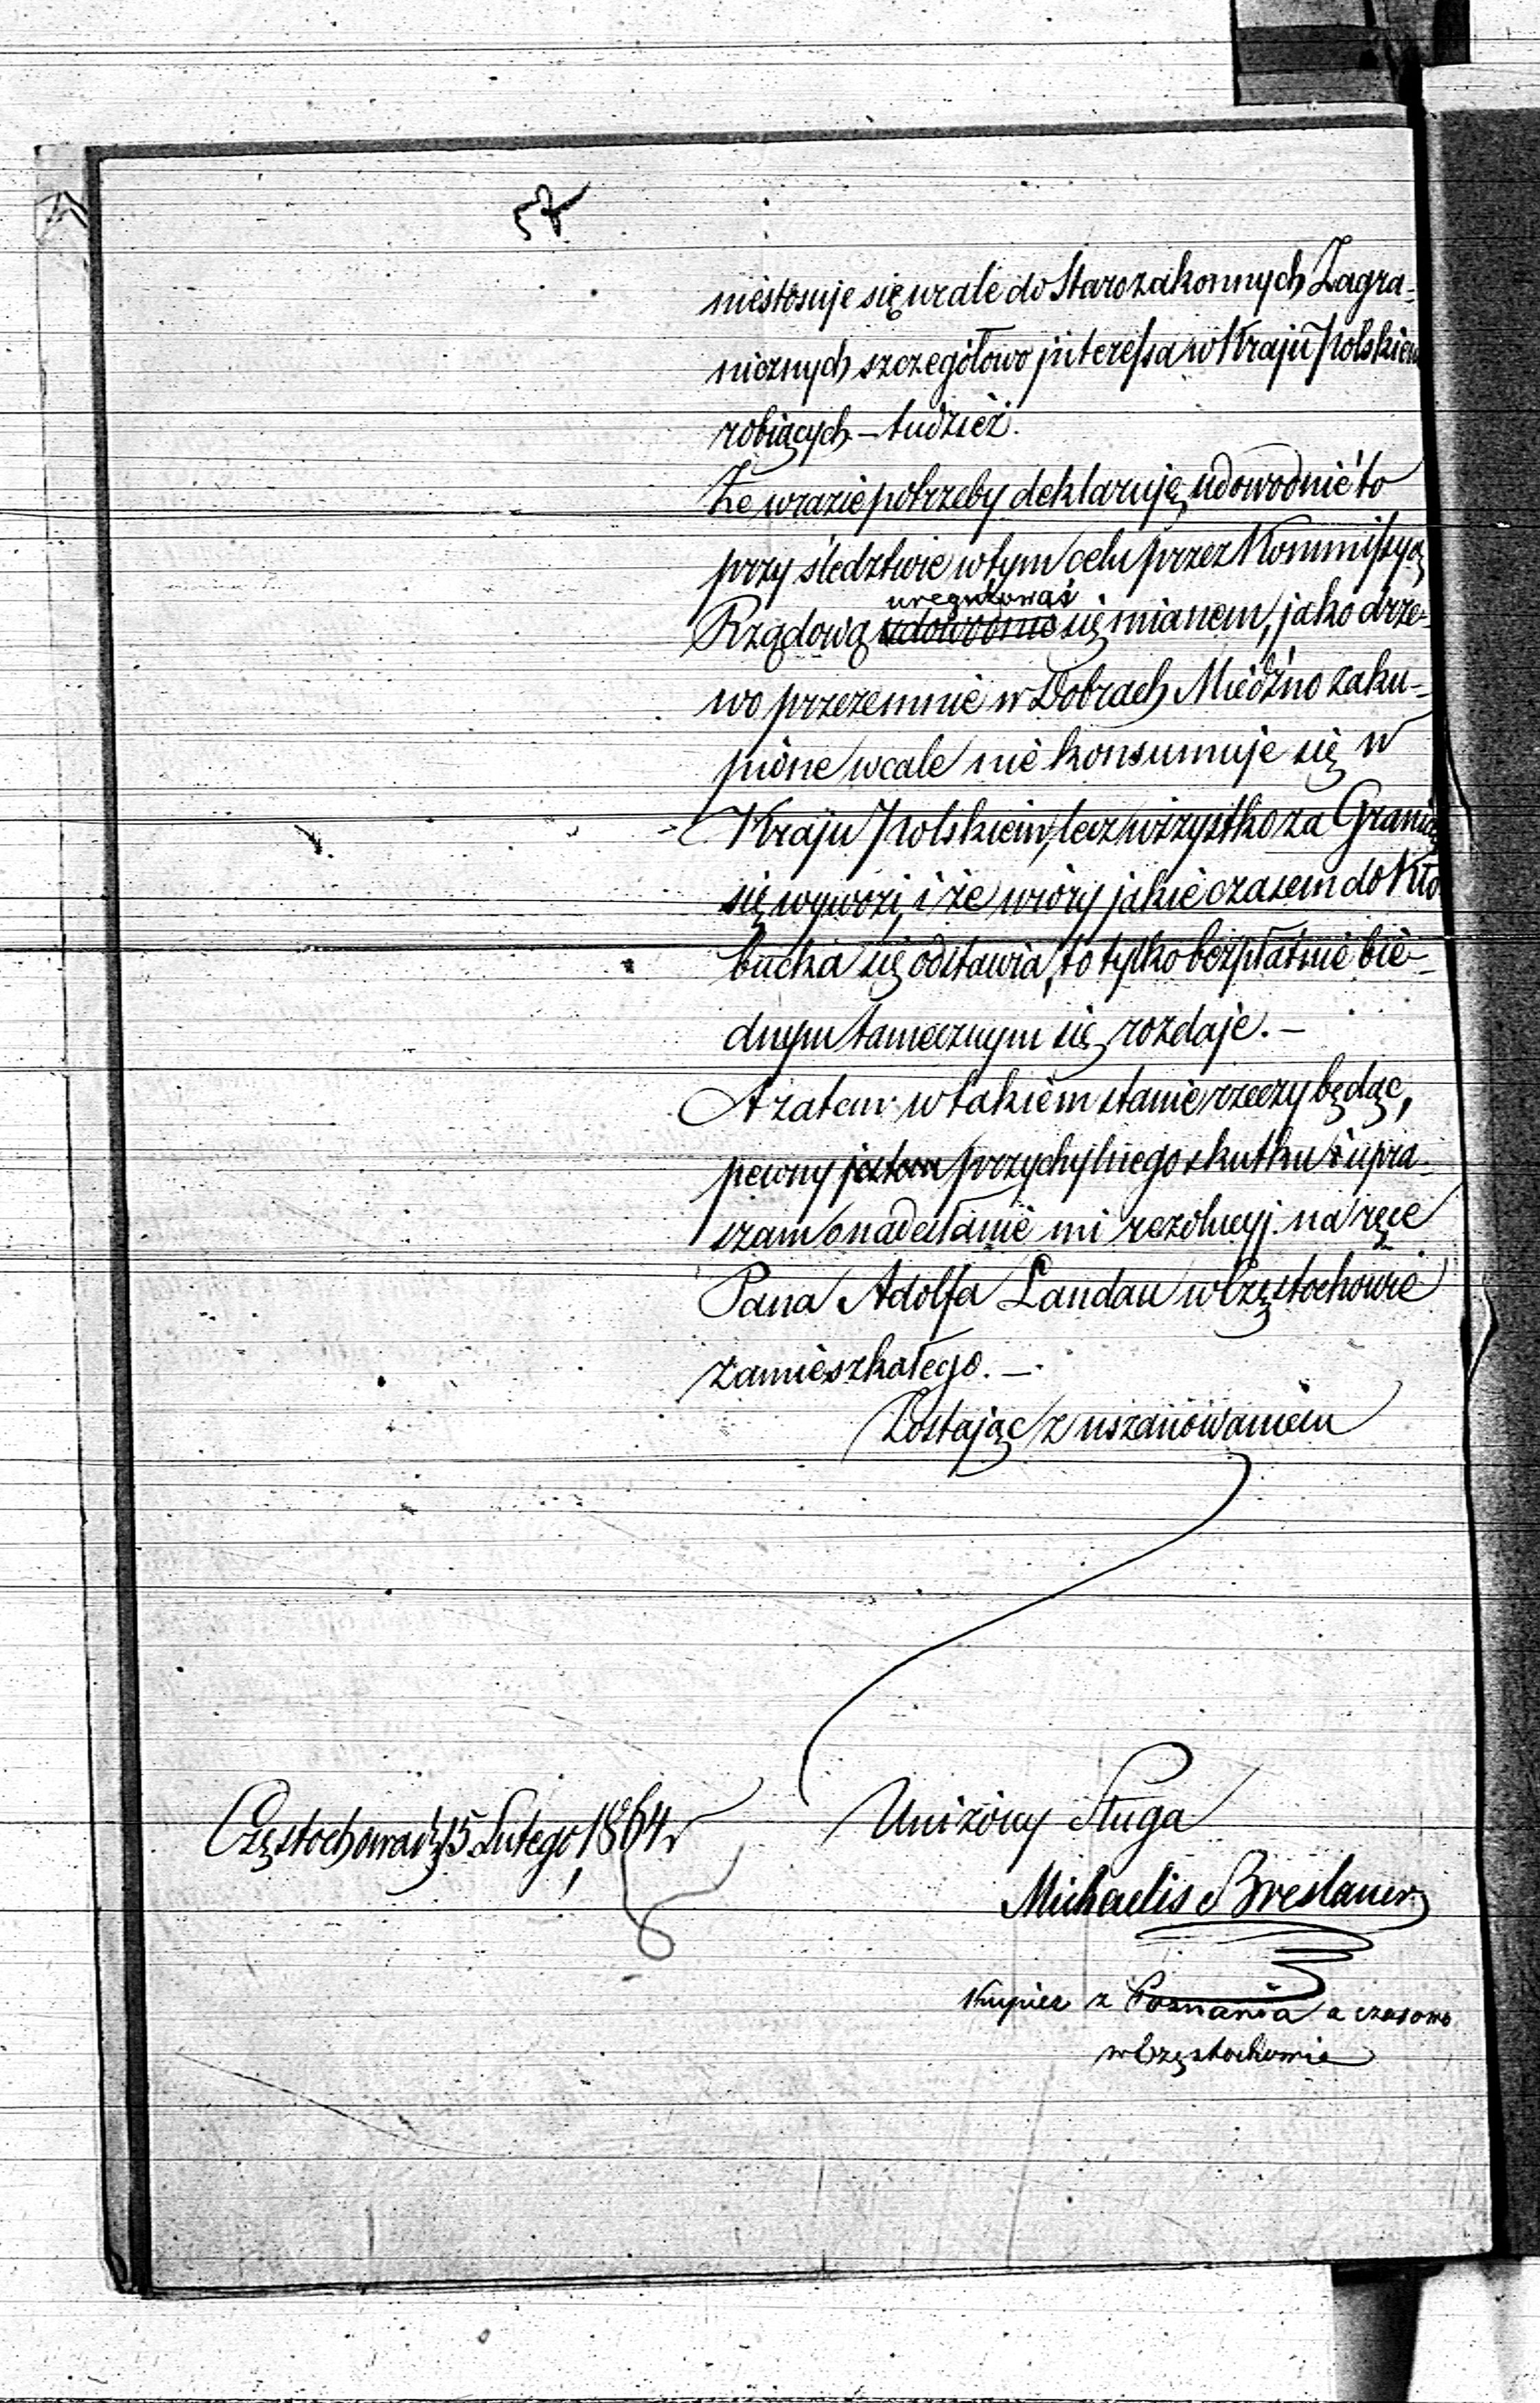 57
niestosuje się wcale do Starozakonnych Zagra-
nicznych szczegółowo interessa w Kraju Polskiem
robiących – tudzież.
Że wrazie potrzeby deklaruję udowodnić to
przy śledztwie w tym celu przez Kommissyą
uregulować
Rządową udowodnić się mianem, jako drze-
wo przezemnie w Dobrach Miedźno zaku-
pione wcale nie konsumuje się w
Kraju Polskiem, lecz wszystko za Granicę
się wywozi, i że wióry jakie czasem do Kło
bucka się odstawia, to tylko bezpłatnie bie-
dnym tamecznym się rozdaje. –
A zatem w takiem stanie rzeczy będąc,
pewny jestem przychylnego skutku i upra-
szam o nadesłanie mi rezolucyj. na ręce
Pana Adolfa Landau w Częstochowie
zamieszkałego. –
Zostając z uszanowaniem
Uniżony Sługa
Częstochowa d. 15 Lutego 1864 r
Michaelis Breslauer
Kupiec z Poznania a czasowo
w Częstochowie